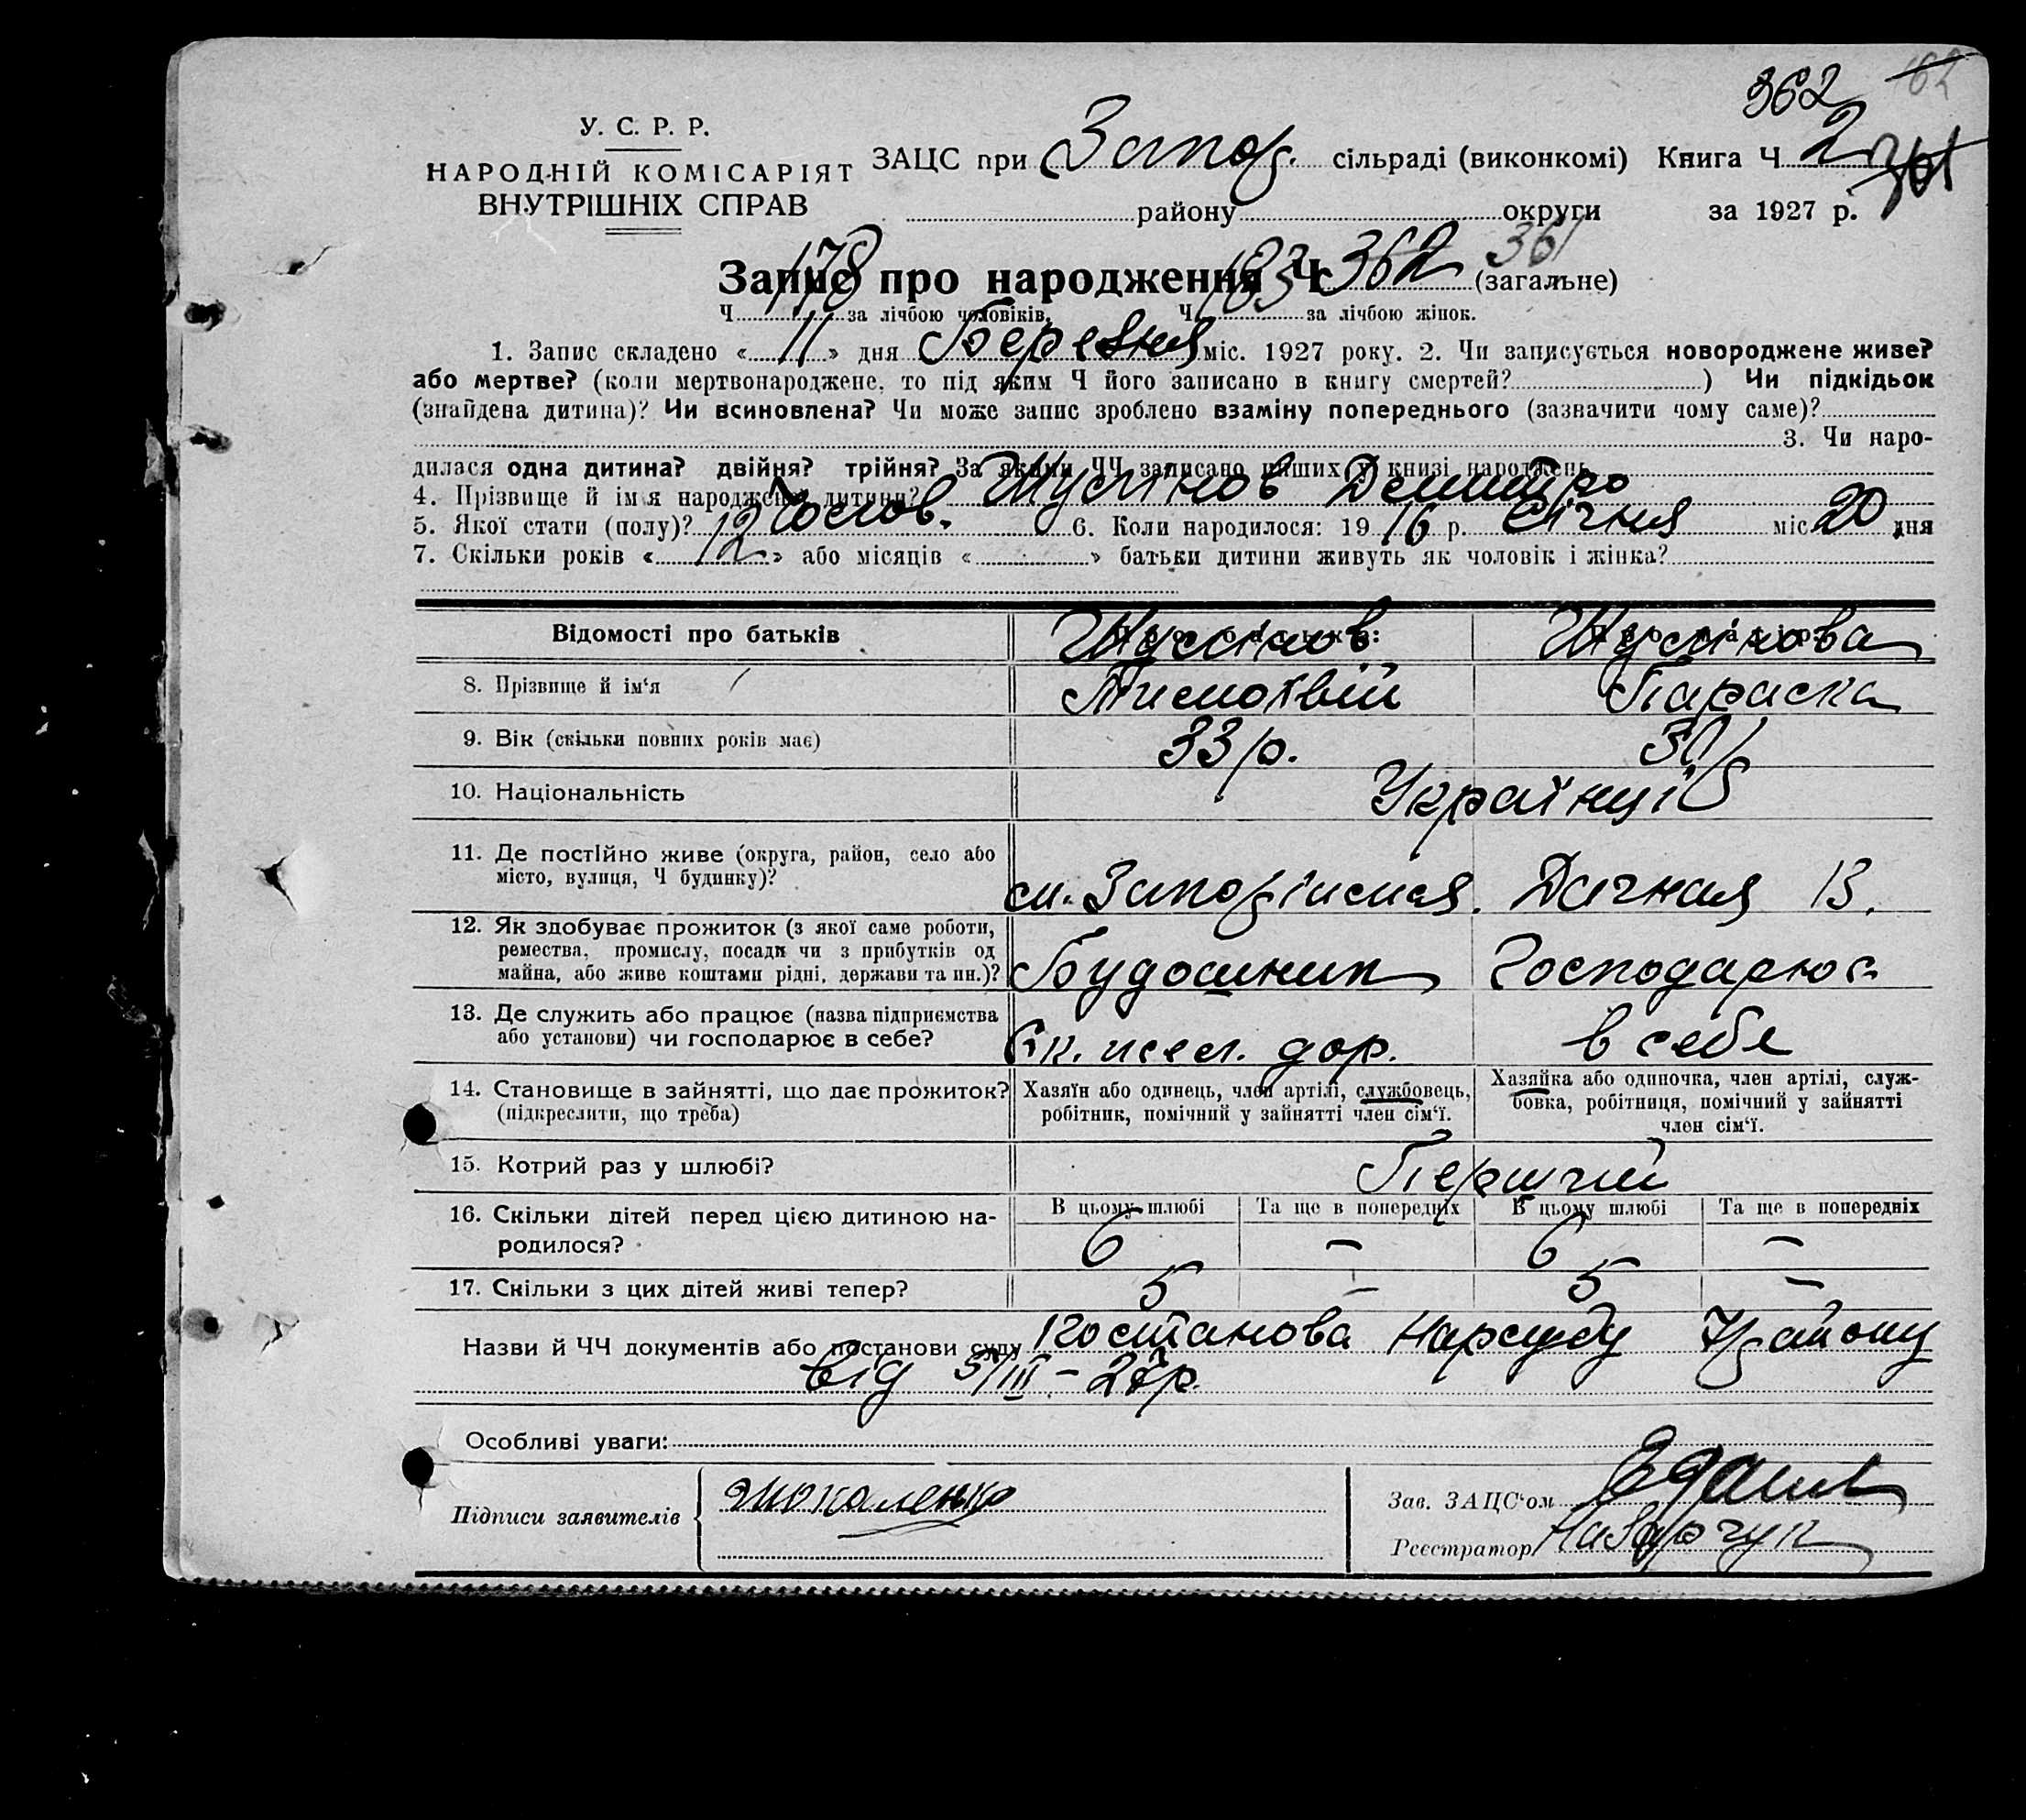 362 162
У. С. Р. Р.
НАРОДНІЙ КОМІСАРІЯТ
ВНУТРІШНІХ СПРАВ
ЗАЦС при Запоз. сільраді (виконкомі) Книга Ч. 2 361
району округи за 1927 р.
Запис про народження Ч 362 361 (загальне)
Ч. 178 за лічбою чоловіків. Ч. 183 за лічбою жінок.
1. Запис складено « 11 » дня Березня міс. 1927 року. 2. Чи записується новороджене живе?
або мертве? (коли мертвонароджене, то під яким Ч його записано в книгу смертей? ) Чи підкідьок
(знайдена дитина)? Чи всиновлена? Чи може запис зроблено взаміну попереднього (зазначити чому саме)?
3. Чи наро-
дилася одна дитина? двійня? трійня? За якими ЧЧ записано инших у книзі народжень
4. Прізвище й ім'я народженої дитини? Дмитро
5. Якої стати (полу)? Чолов. 6. Коли народилося: 19 16 р. Січня міс 20 дня
7. Скільки років « 12 » або місяців « » батьки дитини живуть як чоловік і жінка?
Відомості про батьків
8. Прізвище й ім'я Тимофвій Параска
9. Вік (скільки повних років має) 33 р. 30
10. Національність Українці
11. Де постійно живе (округа, район, село або
місто, вулиця, Ч будинку)? Дачная 13.
12. Як здобуває прожиток (з якої саме роботи,
ремества, промислу, посади чи з прибутків од
майна, або живе коштами рідні, держави та ин.)? Будошник Господарює
13. Де служить або працює (назва підприємства
або установи) чи господарює в себе? Ек. жел. дор. в себе
14. Становище в зайнятті, що дає прожиток?
(підкреслити, що треба)
Хазяїн або одинець, член артілі, службовець,
робітник, помічний у зайнятті член сім'ї.
Хазяйка або одиночка, член артілі, служ-
бовка, робітниця, помічний у зайнятті
член сім'ї.
15. Котрий раз у шлюбі? Перший
16. Скільки дітей перед цією дитиною на-
родилося?
В цьому шлюбі Та ще в попередніх В цьому шлюбі Та ще в попередніх
6 – 6 –
17. Скільки з цих дітей живі тепер? 5 – 5 –
Назви й ЧЧ документів або постанови суду Постанова Нарсуду району
від 5/III – 27р.
Особливі уваги:
Підписи заявителів
Зав. ЗАЦС'ом
Реєстратор Назарчук